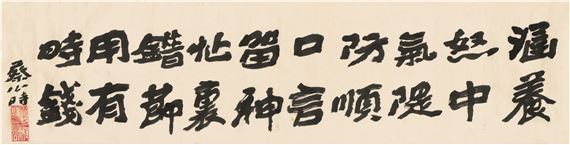 涵養
怒中
氣隄
防順
口言
留神
忙裏
錯節
用有
時錢
蔡公時